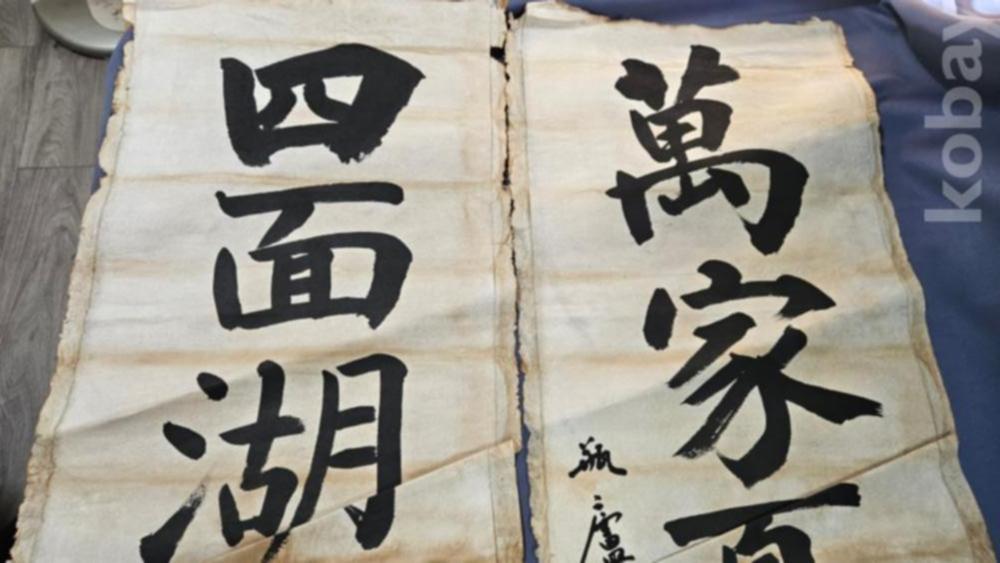 四面湖
萬家
瓶廬